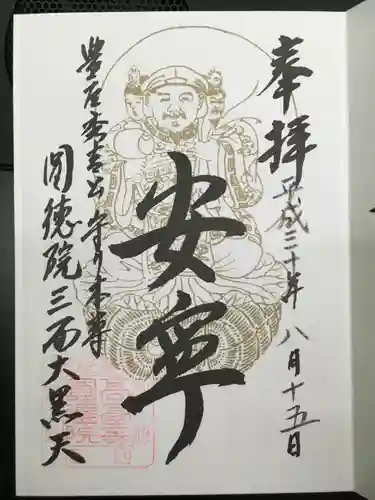 奉拝
平成三十年八月十五日
安寧
豊臣秀吉公守り本尊
圓徳院三面大黒天